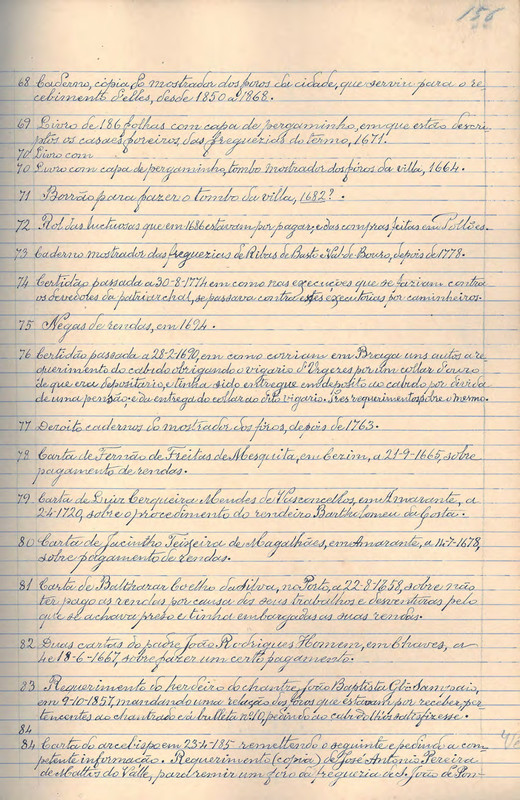 156
68 Caderno, cópia do mostrador dos foros da cidade, que serviu para o re-
cebimento d'elles, desde 1850 a 1868.
69 Livro de 186 folhas com capa de pergaminho, em que estão descri-
ptos os casaes foreiros das freguezias do termo, 1671.
70 Livro com
70 Livro com capa de pergaminho, tombo mostrador dos fóros da villa, 1664.
71 Borrão para fazer o tombo da villa, 1682?.
72 Rol das luctuosas que em 1686 estavam por pagar, e das compras feitas em
73 Caderno mostrador das freguezias de Ribas de Basto de Bouro, depois de 1778.
74 Certidão passada a 30-8-1774 em como nas execuções que se faziam contra
os devedores da patriarchal, se passava contra estes executorias por caminheiros.
75 Negas de rendas, em 1694.
76 Certidão passada a 28-2-1690, em como corriam em Braga uns autos a re-
querimento do cabido obrigando o vigario d'Urgezes por um collar d'ouro
de que era depositário, e tinha sido entregue em deposito ao cabido por divida
de uma pensão; e da entrega do collar ao dito vigario. Tres requerimentos sobre o mesmo.
77 Dezoito cadernos do mostrador dos foros, depois de 1763.
78 Carta de Fernão de Freitas de Mesquita, em Cerim, a 21-9-1665, sobre
pagamento de rendas.
79 Carta de Luiz Cerqueira Mendes de Vasconcellos, em Amarante, a
2-4-1720, sobre o procedimento do rendeiro Bartholomeu da Costa.
80 Carta de Jacintho Teixeira de Magalhães, em Amarante, a 14-7-1678,
sobre pagamento de rendas.
81 Carta de Balthazar Coelho da Silva, no Porto, a 22-8-1658, sobre não
ter pago as rendas por causa dos seus trabalhos e desventuras pelo
que se achava preso e tinha embargadas as suas rendas.
82 Duas cartas do padre João Rodrigues Homem, em Chaves, a
4 e 18-6-1667, sobre fazer um certo pagamento.
83 Requerimento do herdeiro do chantre, João Baptista Glz Sampaio,
em 9-10-1857, mandando uma relação dos foros que estavam por receber, per-
tencentes ao chantrado e á bulleta nº 10, pedindo ao cabido lh'os satisfizesse.
84
84 Carta do arcebispo em 23-4-185 remettendo o seguinte e pedindo a com-
petente informação. Requerimento (copia) de José Antonio Pereira
de Mattos do Valle, para remir um foro da freguezia de S. João de Pon-